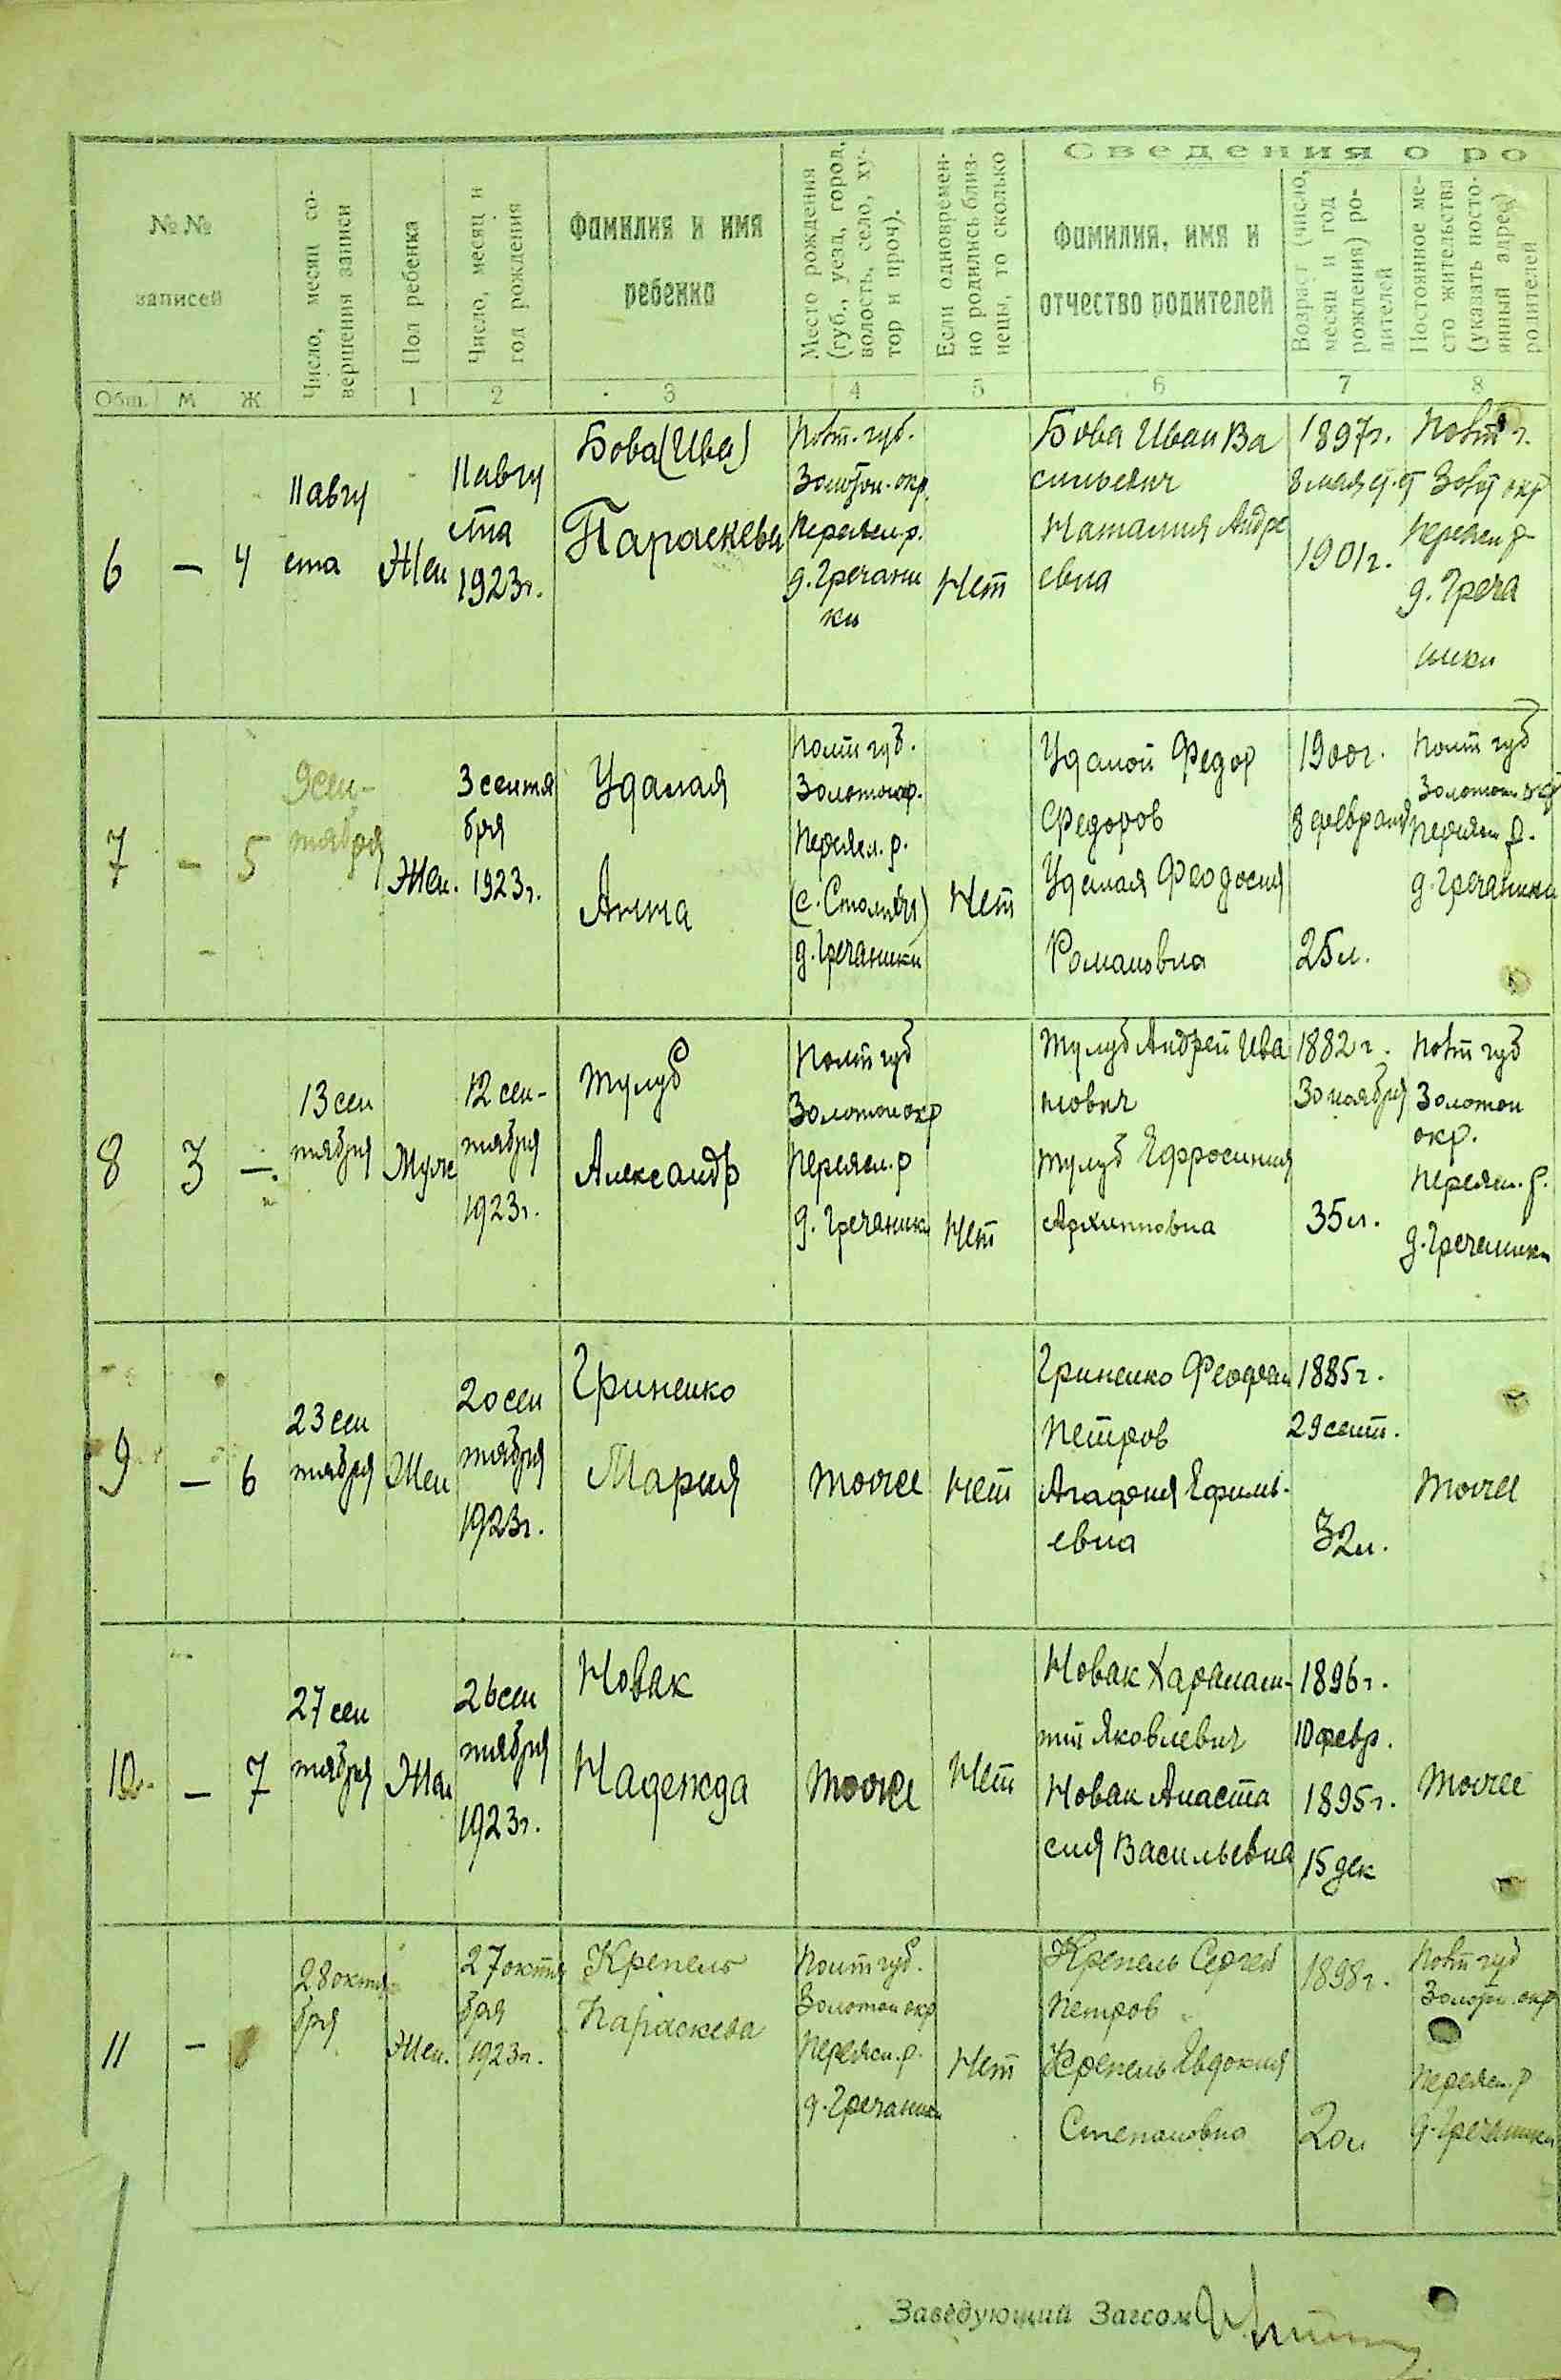 Сведения о ро
№ №
записей
Число, месяц со-
вершения записи
Пол ребенка
Число, месяц и
год рождения
Фамилия и имя
ребенка
Место рождения
(губ., уезд, город,
волость, село, ху-
тор и проч).
Если одновремен-
но родились близ-
нецы, то сколько
Фамилия, имя и
отчество родителей
Возраст (число,
месяц и год
рождения) ро-
дителей
Постоянное ме-
сто жительства
(указать посто-
янный адрес)
родителей
Общ. М Ж 1 2 3 4 5 6 7 8
6 — 4
11 авгу
ста
Жен
11 авгу
ста
1923г.
Бова (Ива)
Параскева
Полт. губ.
Золотон. окр.
Переясл. р.
д. Гречани
ки
Нет
Бова Иван Ва
сильевич
Наталия Андре
евна
1897г.
8 мая
1901г.
Полт г.
Золот окр
Переясл р
д. Греча
ники
7 - 5
9 сен-
тября
Жен.
3 сентя
бря
1923г.
Удалая
Анна
Полт губ.
Золотон окр.
Переясл. р.
д. Гречаники
Нет
Удалой Федор
Федоров
Удалая Феодосия
Романовна
1900г.
8 февраля
25 л.
Полт губ
Золотон окр
Переясл р.
д. Гречаники
8 3 —
13 сен
тября
Муж
12 сен-
тября
1923г.
Тулуб
Александр
Полт губ
Золотон окр
Переясл. р
д. Гречаники
Нет
Тулуб Андрей Ива
нович
Тулуб Ефросиния
Архиповна
1882 г.
30 ноября
35 л.
Полт губ
Золотон
окр.
Переясл. р.
д. Гречаники
9 — 6
23 сен
тября
Жен
20 сен
тября
1923г.
Гриненко
Мария
тоже
нет
Гриненко Феофан
Петров
Агафия Ефимь-
евна
1885г.
29 сент.
32 л.
тоже
10 — 7
27 сен
тября
Жен
26 сен
тября
1923г.
Новак
Надежда
тоже
Нет
Новак Харалам-
пий Яковлевич
Новак Анаста
сия Васильевна
1896г.
10 февр.
1895г.
15 дек
тоже
11 —
28 октя
бря
Жен.
27 октя
бря
1923г.
Крепель
Параскева
Полт губ.
Золотон окр
Переясл. р.
д. Гречаники
Нет
Крепель Сергей
Петров
Крепель Евдокия
Степановна
1898г.
20 л
Полт губ
Золотон. окр
Переясл. р
д. Гречаники
Заведующий Загсом